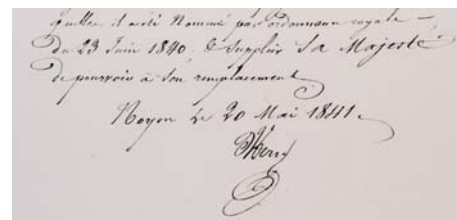 quelles il a été Nommé par ordonnance royale —
du 23 Juin 1840. & supplie Sa Majesté
de pourvoir à son remplacement
Noyon le 20 Mai 1841.